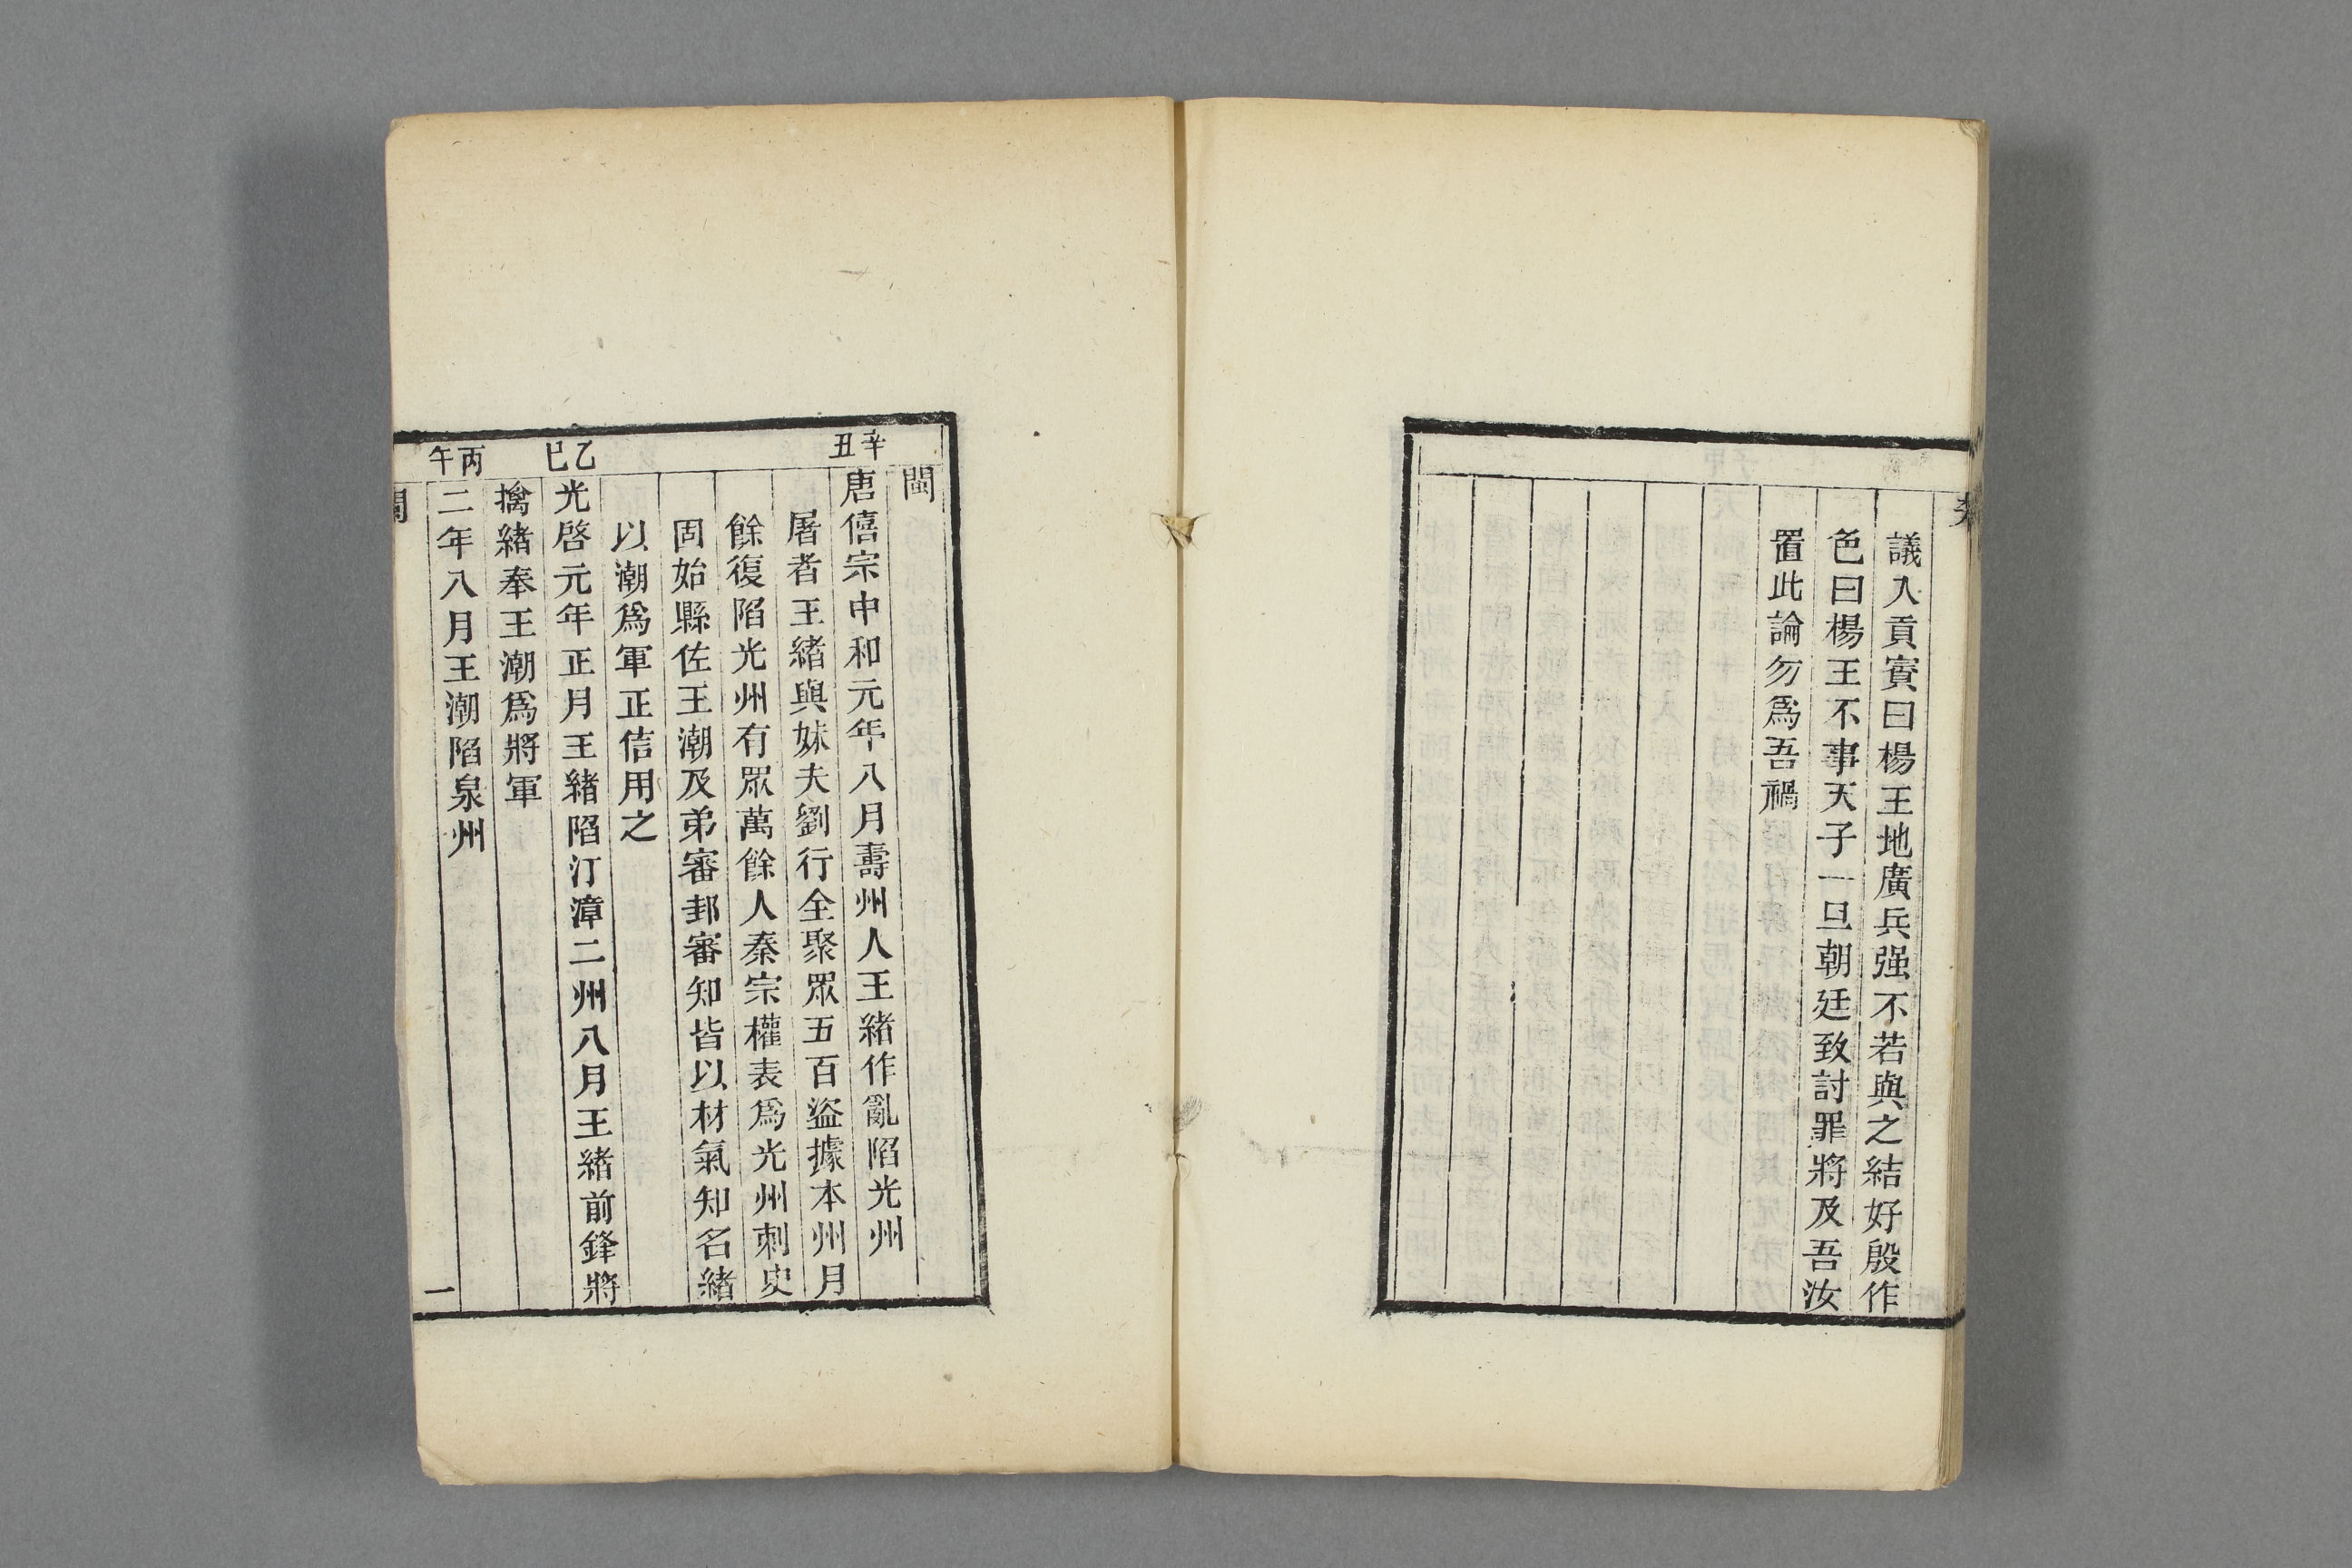 議入貢賨曰楊王地廣兵强不若與之結好殷作
色曰楊王不事天子一旦朝廷致討罪將及吾汝
置此論勿爲吾禍
閩
辛丑
唐僖宗中和元年八月壽州人王緒作亂陷光州
屠者王緒與妹夫劉行全聚眾五百盜據本州月
餘復陷光州有眾萬餘人秦宗權表爲光州刺史
固始縣佐王潮及弟審邽審知皆以材氣知名緒
以潮爲軍正信用之
乙巳
光啓元年正月王緒陷汀漳二州八月王緒前鋒將
擒緒奉王潮爲將軍
丙午
二年八月王潮陷泉州
閩
一